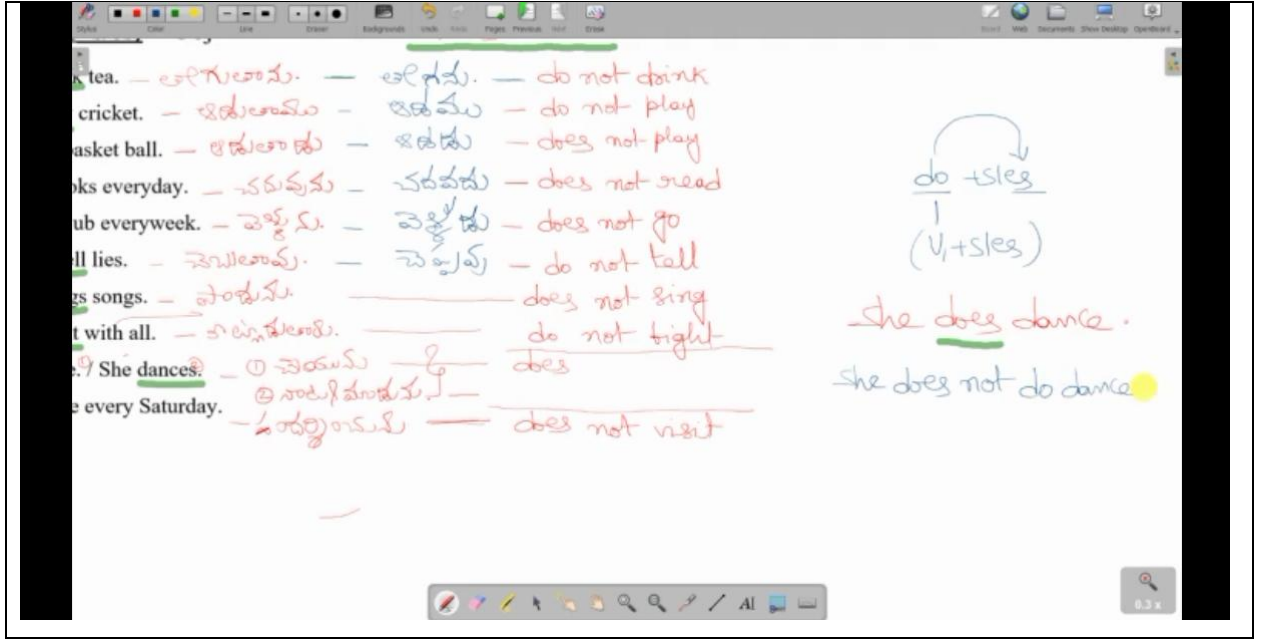 Stylus Color Line Eraser Backgrounds Undo Redo Pages Previous Next Erase Board Web Documents Show Desktop OpenBoard
k tea. – త్రాగుతాను. – త్రాగను. – do not drink
cricket. – ఆడుతాము – ఆడము – do not play
basket ball. – ఆడుతాడు – ఆడడు – does not play
oks everyday. – చదువును – చదవదు – does not read
ub everyweek. – వెళ్ళును. – వెళ్ళడు – does not go
ell lies. – చెబుతావు. – చెప్పవు – do not tell
gs songs. – పాడును. – does not sing
t with all. – do not fight
e. / She dances. – ① చేయును – does
② నాట్యమాడును
e every Saturday. – సందర్శించును – does not visit
do + s/es
(V1+s/es)
She does dance.
She does not do dance
0.3 x